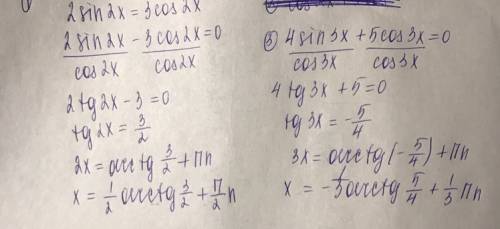 2sin2x = 3cos2x
2sin2x/cos2x - 3cos2x/cos2x = 0
2tg2x - 3 = 0
tg2x = 3/2
2x = arctg 3/2 + πn
x = 1/2 arctg 3/2 + π/2 n
③ 4sin3x/cos3x + 5cos3x/cos3x = 0
4tg3x + 5 = 0
tg3x = -5/4
3x = arctg(-5/4) + πn
x = -1/3 arctg 5/4 + 1/3 πn